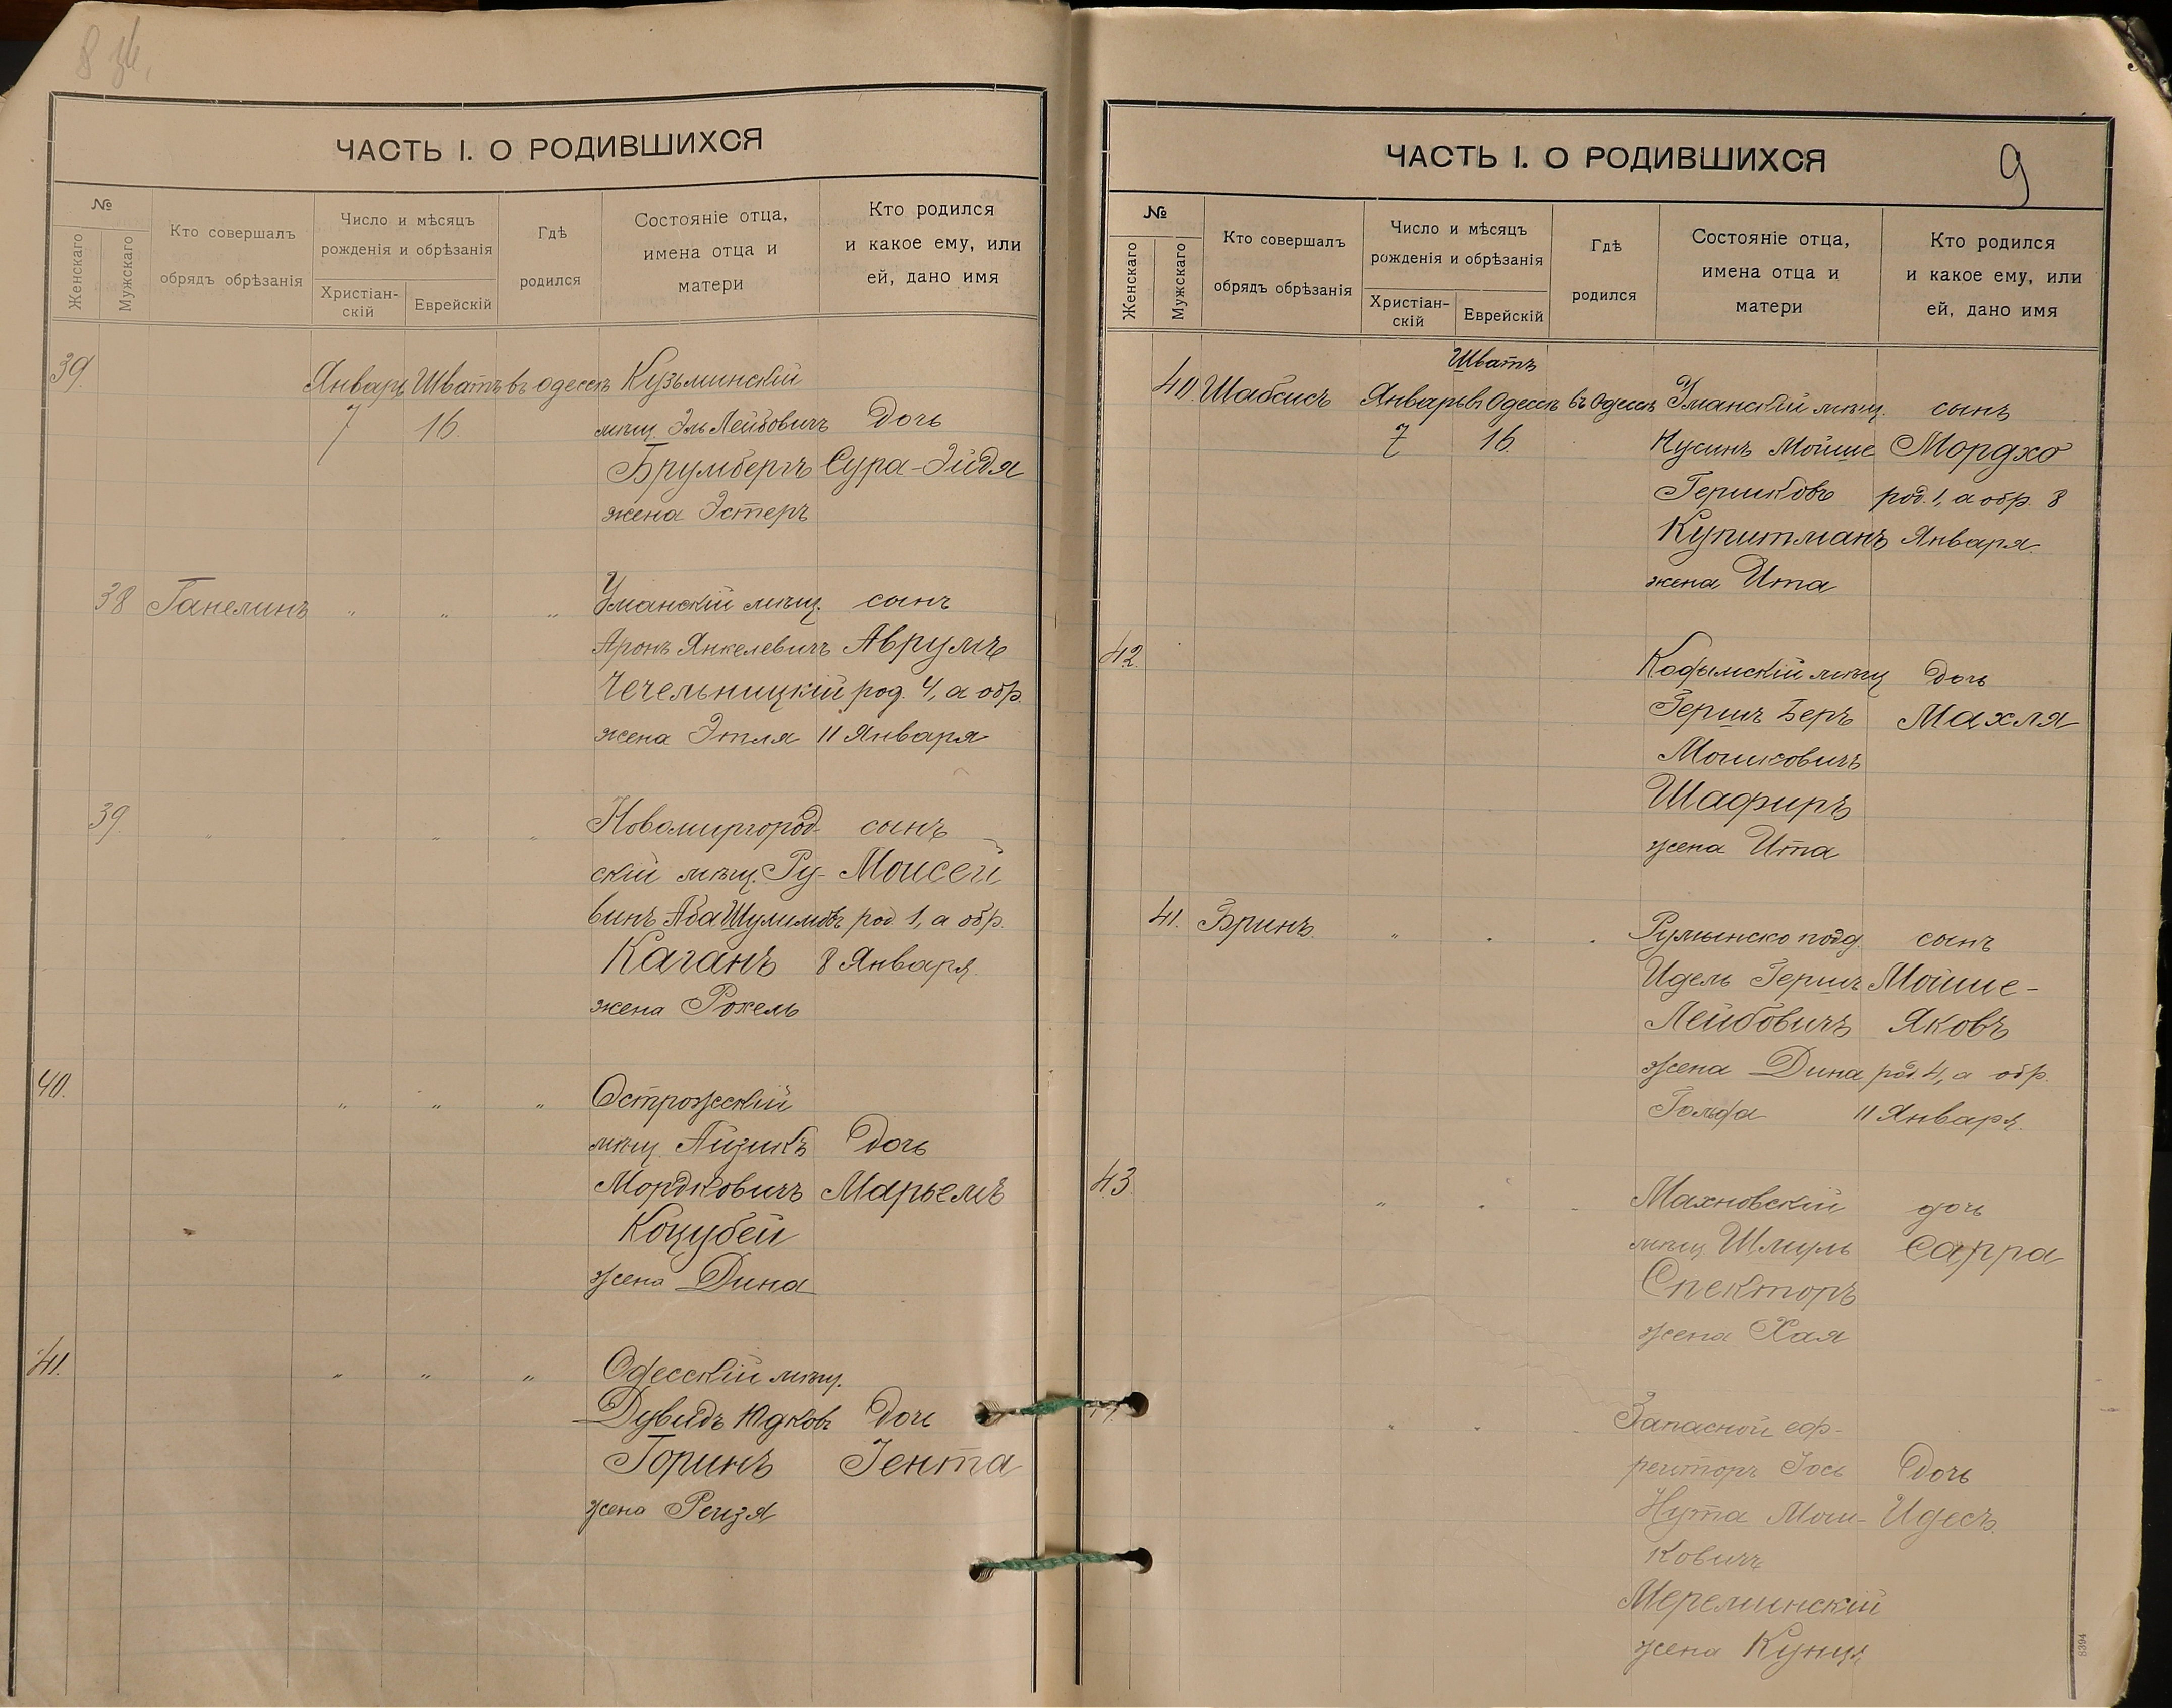 8 зв.
ЧАСТЬ I. О РОДИВШИХСЯ
№
Женскаго
Мужскаго
Кто совершалъ
обрядъ обрѣзанія
Число и мѣсяцъ
рожденія и обрѣзанія
Христіан-
скій
Еврейскій
Гдѣ
родился
Состояніе отца,
имена отца и
матери
Кто родился
и какое ему, или
ей, дано имя
39. Январь Шватъ въ Одессѣ Кузьминскій
7 16. мѣщ. Эль Лейбовичъ Дочь
Брумбергъ Сура-Эйдя
жена Эстеръ
38 Ганелинъ „ „ „ Уманскій мѣщ. сынъ
Аронъ Янкелевичъ Аврумъ
Чечельницкій род. 4, а обр.
жена Этля 11 Января
39. „ „ „ „ Новомиргород- сынъ
скій мѣщ. Ру- Моисей
винъ Аба Шулимовъ род 1, а обр.
Каганъ 8 Января.
жена Рохель
40. „ „ „ Острожскій
мѣщ. Айзикъ Дочь
Мордковичъ Марьемъ
Коцубей
жена Дина
41. „ „ „ Одесскій мѣщ.
Дувидъ Юдковъ Дочь
Горинъ Іента
жена Рейзя
9
ЧАСТЬ I. О РОДИВШИХСЯ
№
Женскаго
Мужскаго
Кто совершалъ
обрядъ обрѣзанія
Число и мѣсяцъ
рожденія и обрѣзанія
Христіан-
скій
Еврейскій
Гдѣ
родился
Состояніе отца,
имена отца и
матери
Кто родился
и какое ему, или
ей, дано имя
Шватъ
40. Шабсисъ Январь въ Одессѣ въ Одессѣ Уманскій мѣщ. сынъ
7 16. Нусинъ Мойше Мордхо
Гершковъ род. 1, а обр. 8
Купитманъ Января.
жена Ита
42. Кодымскій мѣщ Дочь
Гершъ Беръ Махля
Мошковичъ
Шафиръ
жена Ита
41. Бринъ. „ „ „ Румынско подд. сынъ
Идель Гершъ Мойше-
Лейбовичъ Яковъ
жена Дина род. 4, а обр.
Гольда 11 Января.
43. „ „ „ Махновскій дочь
мѣщ Шмуль Сарра
Спекторъ
жена Хая
„ „ „ Запасной еф-
рейторъ Іось Дочь
Нута Мош- Идесъ.
ковичъ
Мереминскій
жена Куниця
8394